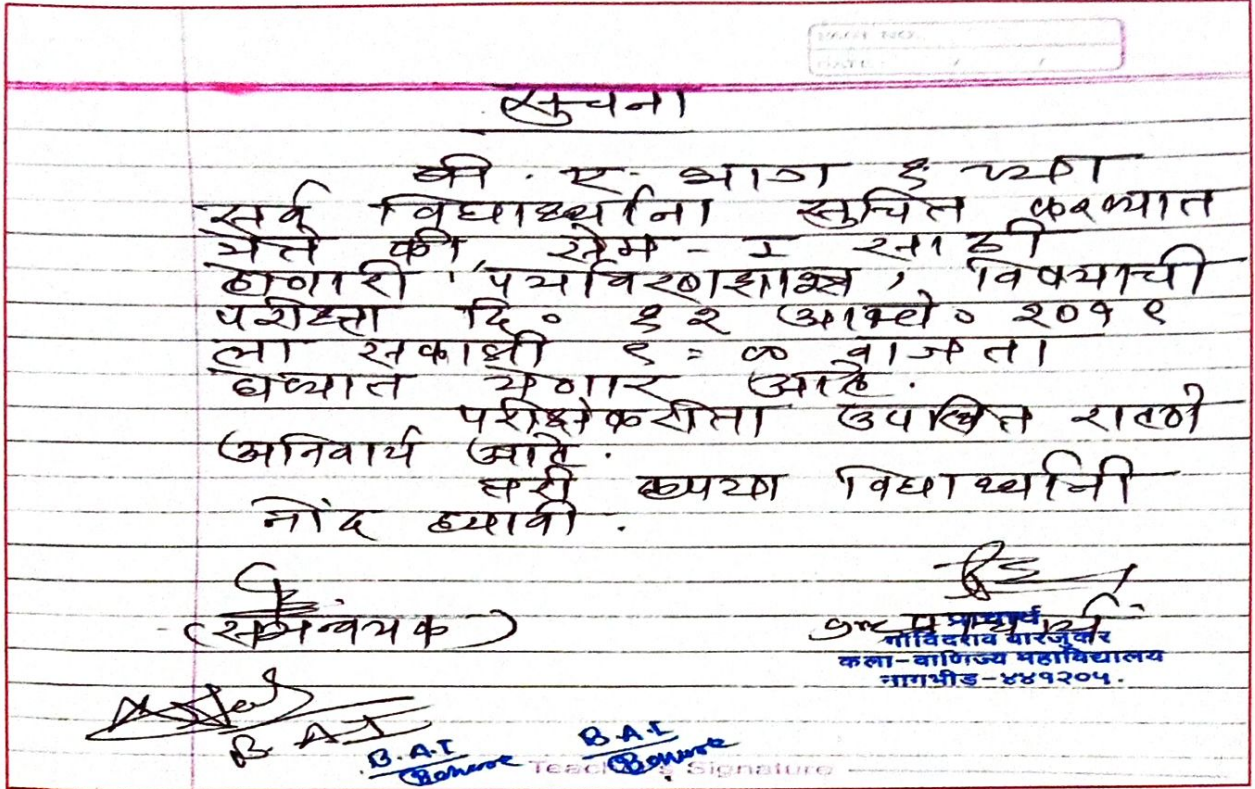 PAGE NO.
DATE : / /
सुचना
बी. ए. भाग १ च्या
सर्व विद्यार्थ्यांना सुचित करण्यात
येते की, सेम - I साठी
होणारी 'पर्यावरणशास्त्र' विषयाची
परीक्षा दि० १२ आक्टो० २०१९
ला सकाळी ९ : ०० वाजता
घेण्यात येणार आहे.
परीक्षेकरीता उपस्थित राहणे
अनिवार्य आहे.
तरी कृपया विद्यार्थ्यांनी
नोंद घ्यावी.
(समन्वयक)
प्राचार्य
गोविंदराव वारजुकर
कला-वाणिज्य महाविद्यालय
नागभीड-४४१२०५.
B. A I
B.A.I
B.A.I
Teacher's Signature